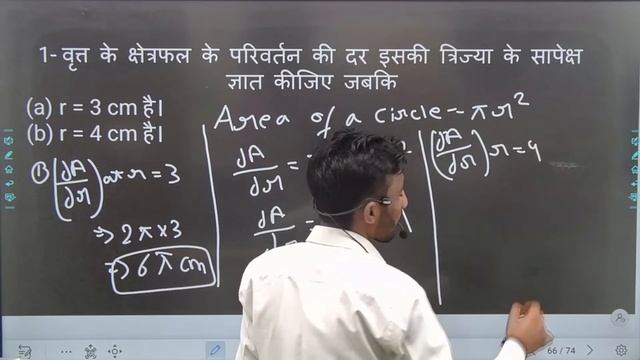 1- वृत्त के क्षेत्रफल के परिवर्तन की दर इसकी त्रिज्या के सापेक्ष
ज्ञात कीजिए जबकि
(a) r = 3 cm है।
(b) r = 4 cm है।
Area of a circle = πr²
(dA/dr) at r = 3
⇒ 2π×3
⇒ 6π cm
dA/dr =
dA/
(dA/dr) r = 4
66 / 74